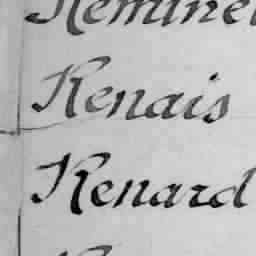 Renais
Renard